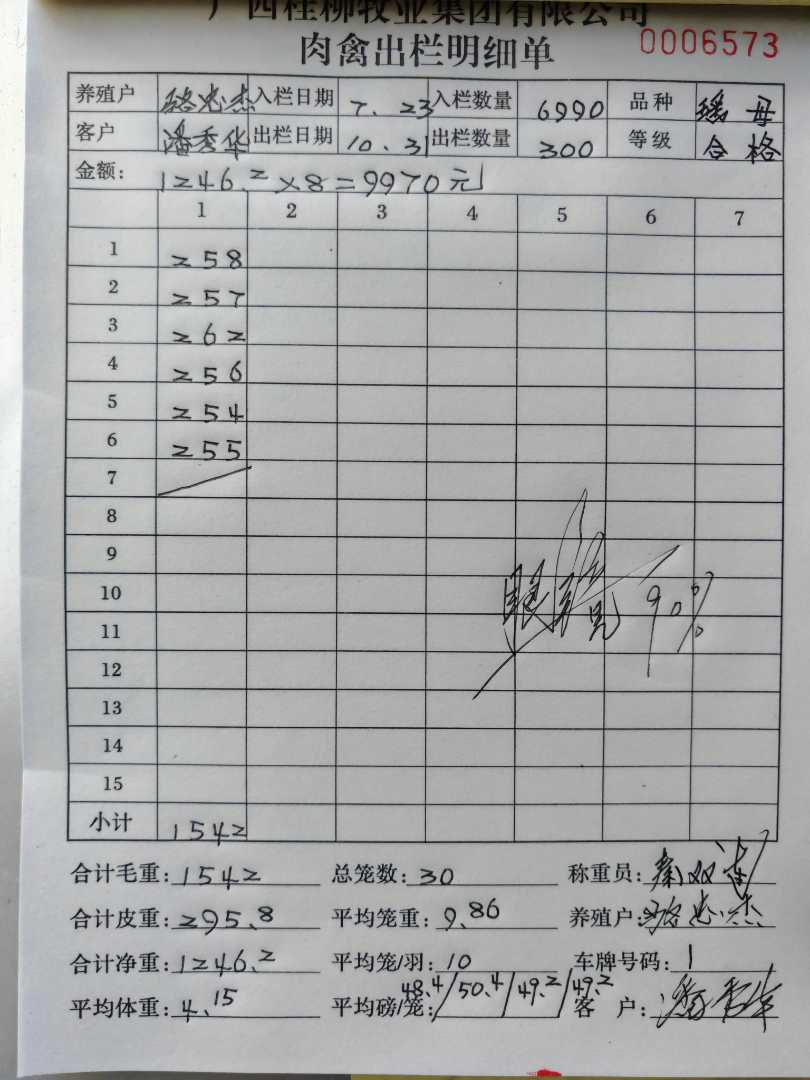 广西桂柳牧业集团有限公司
肉禽出栏明细单 0006573
养殖户 骆忠杰 入栏日期 7.23 入栏数量 6990 品种 瑶母
客户 潘秀华 出栏日期 10.31 出栏数量 300 等级 合格
金额: 1246.2×8=9970元
1 2 3 4 5 6 7
1 258
2 257
3 262
4 256
5 254
6 255
7
8
9
10 90%
11
12
13
14
15
小计 1542
合计毛重: 1542 总笼数: 30 称重员:
合计皮重: 295.8 平均笼重: 9.86 养殖户: 骆忠杰
合计净重: 1246.2 平均笼/羽: 10 车牌号码: 1
平均体重: 4.15 平均磅/笼: 48.4/50.4/49.2/49.2 客 户: 潘秀华